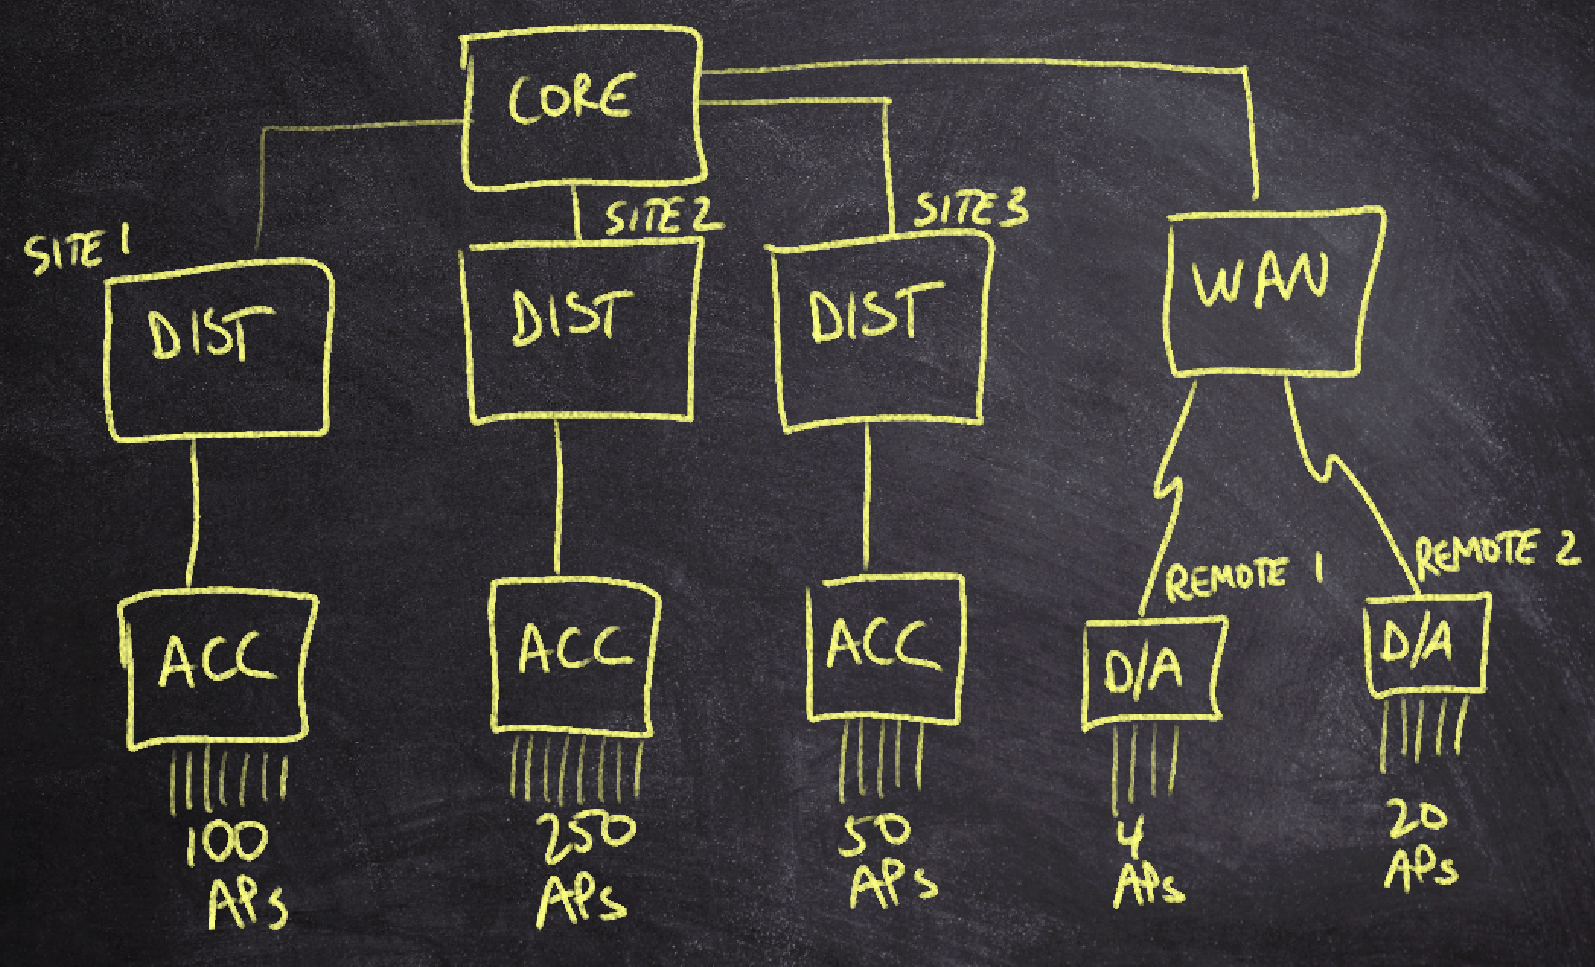 CORE
SITE 1
SITE 2
SITE 3
DIST
DIST
DIST
WAN
REMOTE 1
REMOTE 2
ACC
ACC
ACC
D/A
D/A
100
APs
250
APs
50
APs
4
APs
20
APs